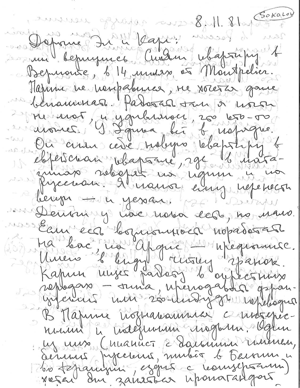 8.11.81
SOKOLOV
Дорогие Эл и Карл:
мы вернулись. Сняли квартиру в
Вермонте, в 14 милях от Montpelier.
Париж не понравился, не хочется даже
вспоминать. Работать там я почти
не мог, и удивляюсь, кто что-то
может. У Эдика всё в порядке.
Он снял себе новую квартиру в
еврейском квартале, где в мага-
зинах говорят на идиш и на
русском. Я помог ему перенести
вещи — и уехал.
Деньги у нас пока есть, но мало.
Если есть возможность поработать
на вас, на Ардис —
Имею в виду читку гранок.
Карин ищет работу в окрестных
городах — преподавать фран-
цузский или что-нибудь переводить
В Париже познакомился с интерес-
ными и людьми. Один
из них (пианист с большим именем,
русский, живёт в Бельгии и
во Франции, ездит с концертами)
хотел бы заняться пропагандой